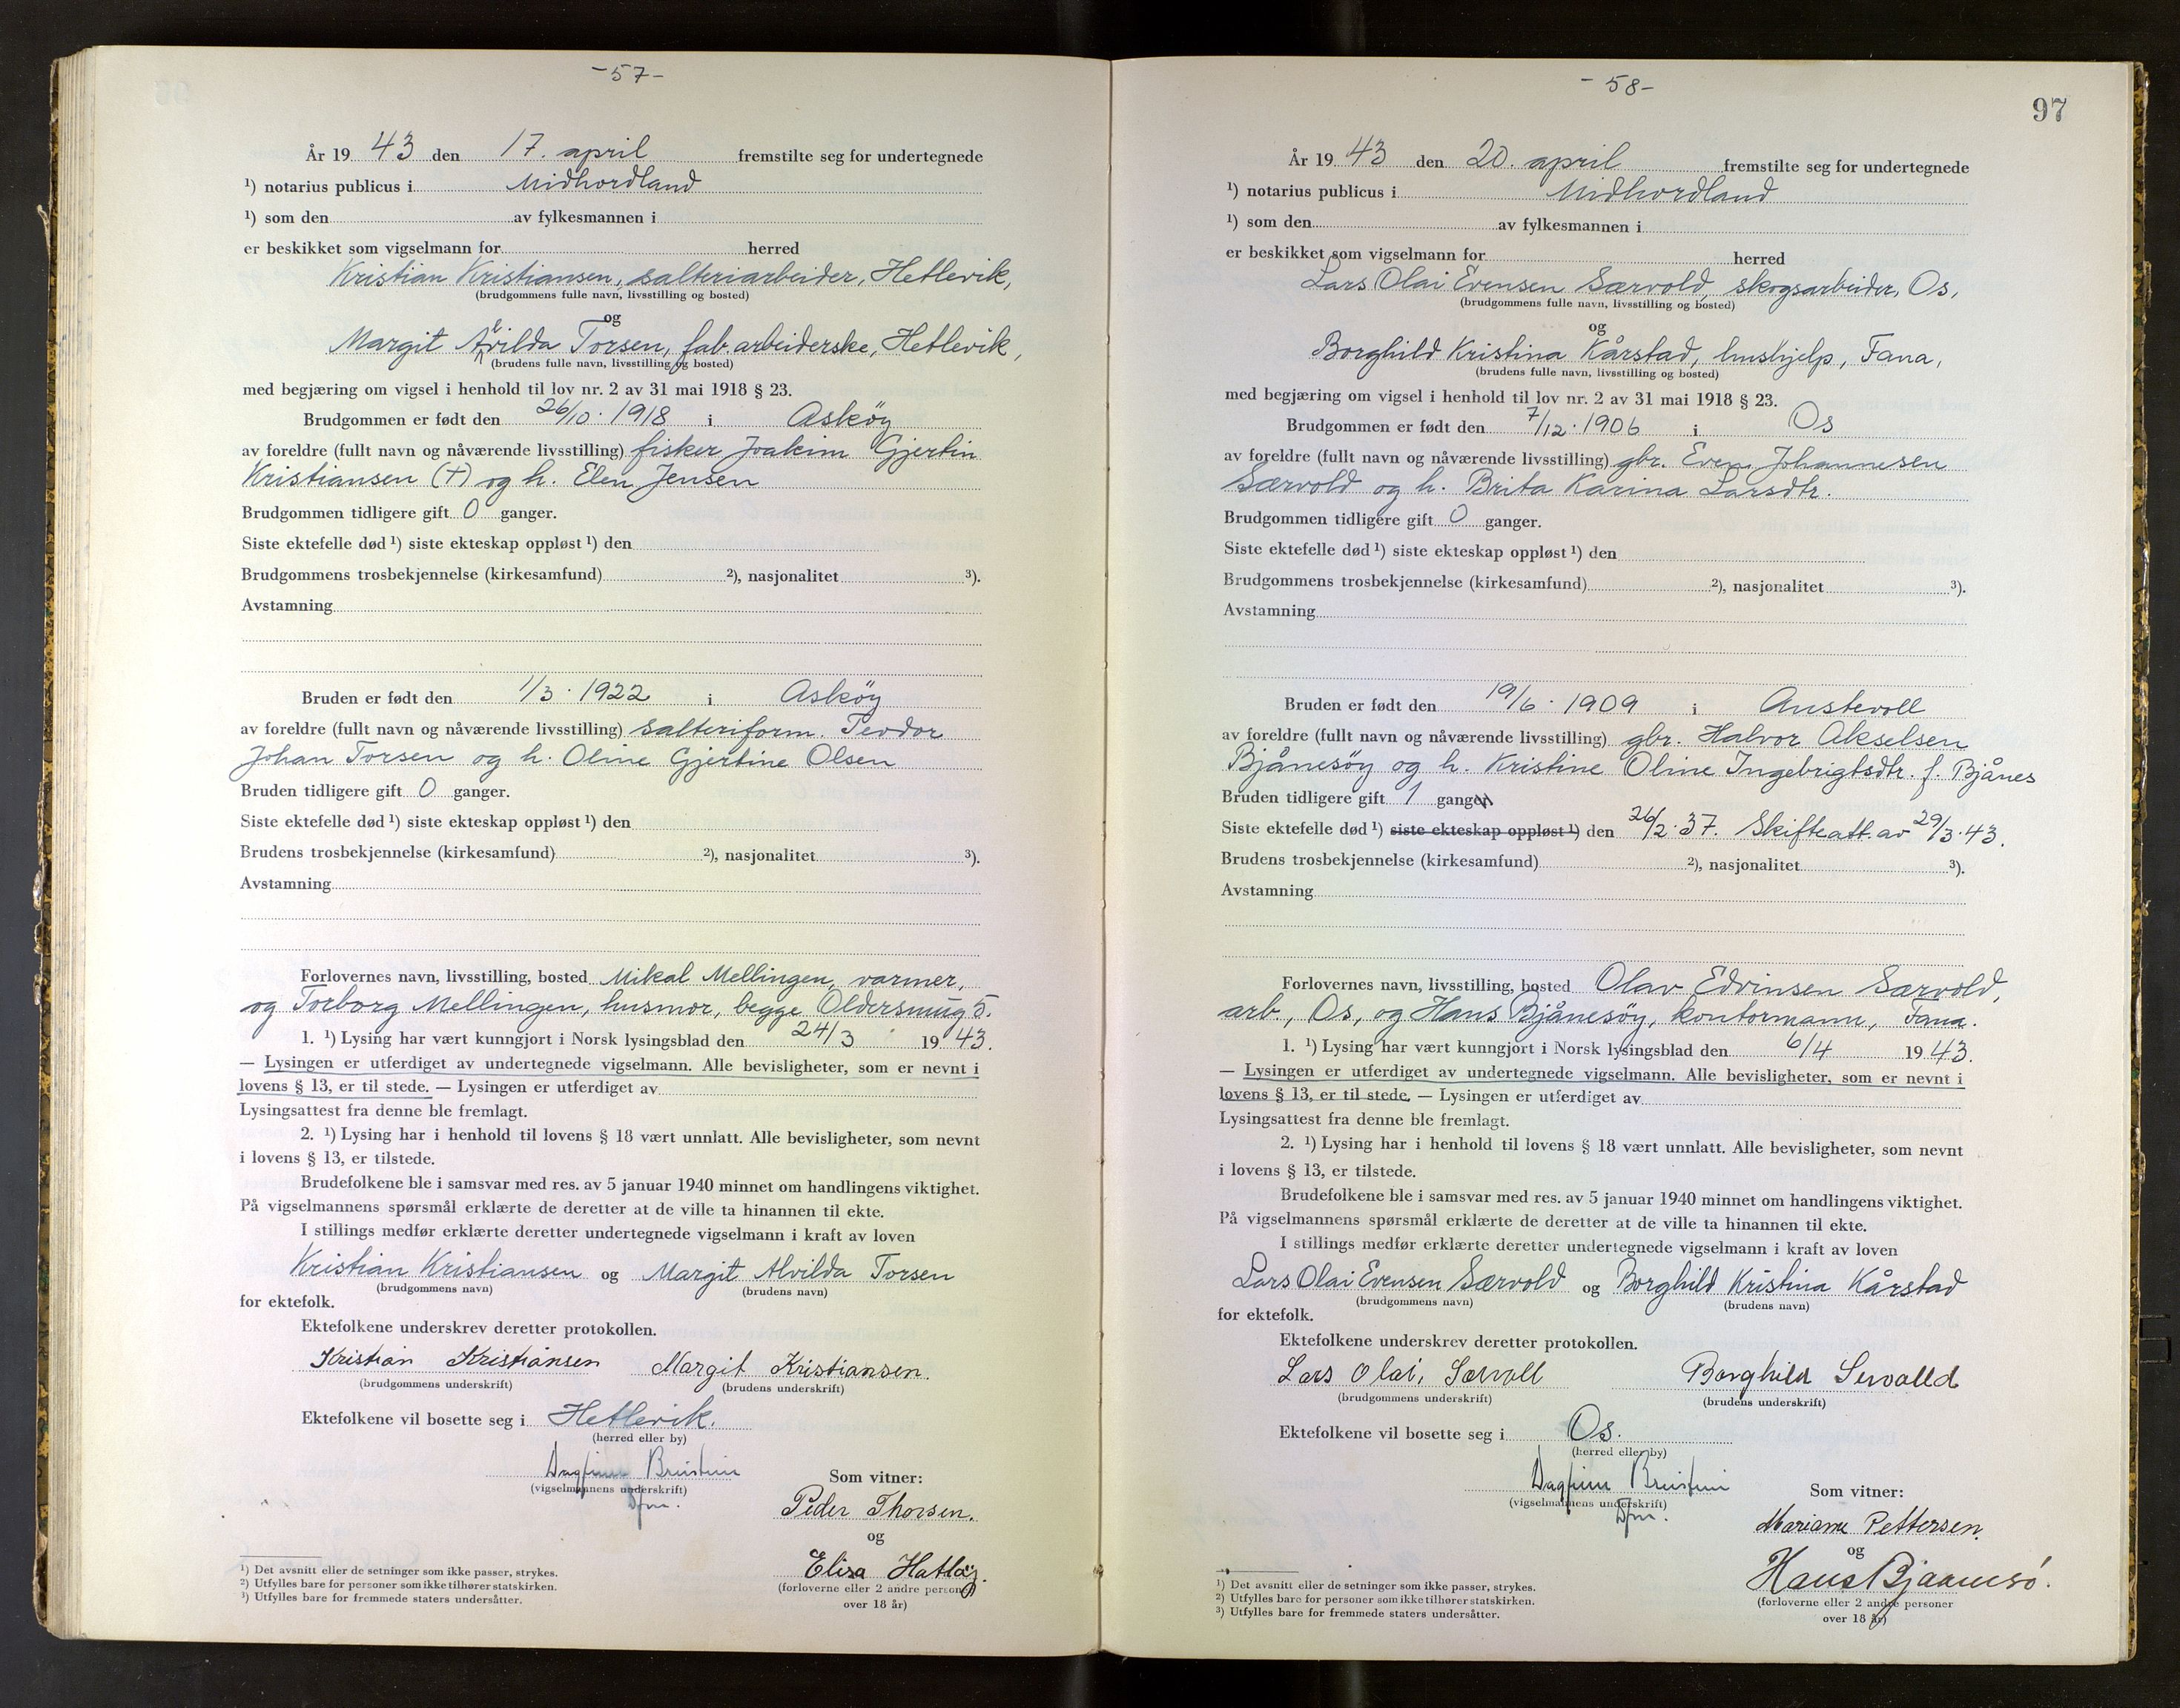 -57-
År 19 43 den 17. april fremstilte seg for undertegnede
¹) notarius publicus i Midhordland
¹) som den av fylkesmannen i
er beskikket som vigselmann for herred
Kristian Kristiansen, salteriarbeider, Hetlevik,
(brudgommens fulle navn, livsstilling og bosted)
og
Margit Alvilda Torsen, fab.arbeiderske, Hetlevik,
(brudens fulle navn, livsstilling og bosted)
med begjæring om vigsel i henhold til lov nr. 2 av 31 mai 1918 § 23.
Brudgommen er født den 26/10. 1918 i Asköy
av foreldre (fullt navn og nåværende livsstilling) fisker Joakim Gjertin
Kristiansen (+) og h. Elen Jensen
Brudgommen tidligere gift 0 ganger.
Siste ektefelle død ¹) siste ekteskap oppløst ¹) den
Brudgommens trosbekjennelse (kirkesamfund) ²), nasjonalitet ³).
Avstamning
Bruden er født den 1/3. 1922 i Asköy
av foreldre (fullt navn og nåværende livsstilling) salteriform. Teodor
Johan Torsen og h. Oline Gjertine Olsen
Bruden tidligere gift 0 ganger.
Siste ektefelle død ¹) siste ekteskap oppløst ¹) den
Brudens trosbekjennelse (kirkesamfund) ²), nasjonalitet ³).
Avstamning
Forlovernes navn, livsstilling, bosted Mikal Mellingen, varmer,
og Torborg Mellingen, husmor, begge Oldersmug 5.
1. ¹) Lysing har vært kunngjort i Norsk lysingsblad den 24/3 19 43.
— Lysingen er utferdiget av undertegnede vigselmann. Alle bevisligheter, som er nevnt i
lovens § 13, er til stede. — Lysingen er utferdiget av
Lysingsattest fra denne ble fremlagt.
2. ¹) Lysing har i henhold til lovens § 18 vært unnlatt. Alle bevisligheter, som nevnt
i lovens § 13, er tilstede.
Brudefolkene ble i samsvar med res. av 5 januar 1940 minnet om handlingens viktighet.
På vigselmannens spørsmål erklærte de deretter at de ville ta hinannen til ekte.
I stillings medfør erklærte deretter undertegnede vigselmann i kraft av loven
Kristian Kristiansen og Margit Alvilda Torsen
(brudgommens navn) (brudens navn)
for ektefolk.
Ektefolkene underskrev deretter protokollen.
Kristian Kristiansen Margit Kristiansen.
(brudgommens underskrift) (brudens underskrift)
Ektefolkene vil bosette seg i Hetlevik.
(herred eller by)
Dagfinn
(vigselmannens underskrift)
Dfm.
Som vitner:
Peder Thorsen.
og
Elisa Hatlöy.
(forloverne eller 2 andre personer
over 18 år)
¹) Det avsnitt eller de setninger som ikke passer, strykes.
²) Utfylles bare for personer som ikke tilhører statskirken.
³) Utfylles bare for fremmede staters undersåtter.
-58-
97
År 19 43 den 20. april fremstilte seg for undertegnede
¹) notarius publicus i Midhordland
¹) som den av fylkesmannen i
er beskikket som vigselmann for herred
Lars Olai Evensen Særvold, skogsarbeider, Os,
(brudgommens fulle navn, livsstilling og bosted)
og
Borghild Kristina Kårstad, hushjelp, Fana,
(brudens fulle navn, livsstilling og bosted)
med begjæring om vigsel i henhold til lov nr. 2 av 31 mai 1918 § 23.
Brudgommen er født den 7/12. 1906 i Os
av foreldre (fullt navn og nåværende livsstilling) gbr. Even Johannesen
Særvold og h. Brita Karina Larsdtr.
Brudgommen tidligere gift 0 ganger.
Siste ektefelle død ¹) siste ekteskap oppløst ¹) den
Brudgommens trosbekjennelse (kirkesamfund) ²), nasjonalitet ³).
Avstamning
Bruden er født den 19/6. 1909 i Austevoll
av foreldre (fullt navn og nåværende livsstilling) gbr. Halvor Akselsen
Bjånesöy og h. Kristine Oline Ingebrigtsdtr. f. Bjånes
Bruden tidligere gift 1 ganger.
Siste ektefelle død ¹) siste ekteskap oppløst ¹) den 26/2. 37. Skifteatt. av 29/3. 43.
Brudens trosbekjennelse (kirkesamfund) ²), nasjonalitet ³).
Avstamning
Forlovernes navn, livsstilling, bosted Olav Edvinsen Særvold,
arb., Os, og Hans Bjånesöy, kontormann, Fana.
1. ¹) Lysing har vært kunngjort i Norsk lysingsblad den 6/4 19 43.
— Lysingen er utferdiget av undertegnede vigselmann. Alle bevisligheter, som er nevnt i
lovens § 13, er til stede. — Lysingen er utferdiget av
Lysingsattest fra denne ble fremlagt.
2. ¹) Lysing har i henhold til lovens § 18 vært unnlatt. Alle bevisligheter, som nevnt
i lovens § 13, er tilstede.
Brudefolkene ble i samsvar med res. av 5 januar 1940 minnet om handlingens viktighet.
På vigselmannens spørsmål erklærte de deretter at de ville ta hinannen til ekte.
I stillings medfør erklærte deretter undertegnede vigselmann i kraft av loven
Lars Olai Evensen Særvold og Borghild Kristina Kårstad
(brudgommens navn) (brudens navn)
for ektefolk.
Ektefolkene underskrev deretter protokollen.
Lars Olai Særvoll Borghild Servolld
(brudgommens underskrift) (brudens underskrift)
Ektefolkene vil bosette seg i Os.
(herred eller by)
Dagfinn
(vigselmannens underskrift)
Dfm.
Som vitner:
Mariane Pettersen.
og
Hans Bjaanesö.
(forloverne eller 2 andre personer
over 18 år)
¹) Det avsnitt eller de setninger som ikke passer, strykes.
²) Utfylles bare for personer som ikke tilhører statskirken.
³) Utfylles bare for fremmede staters undersåtter.